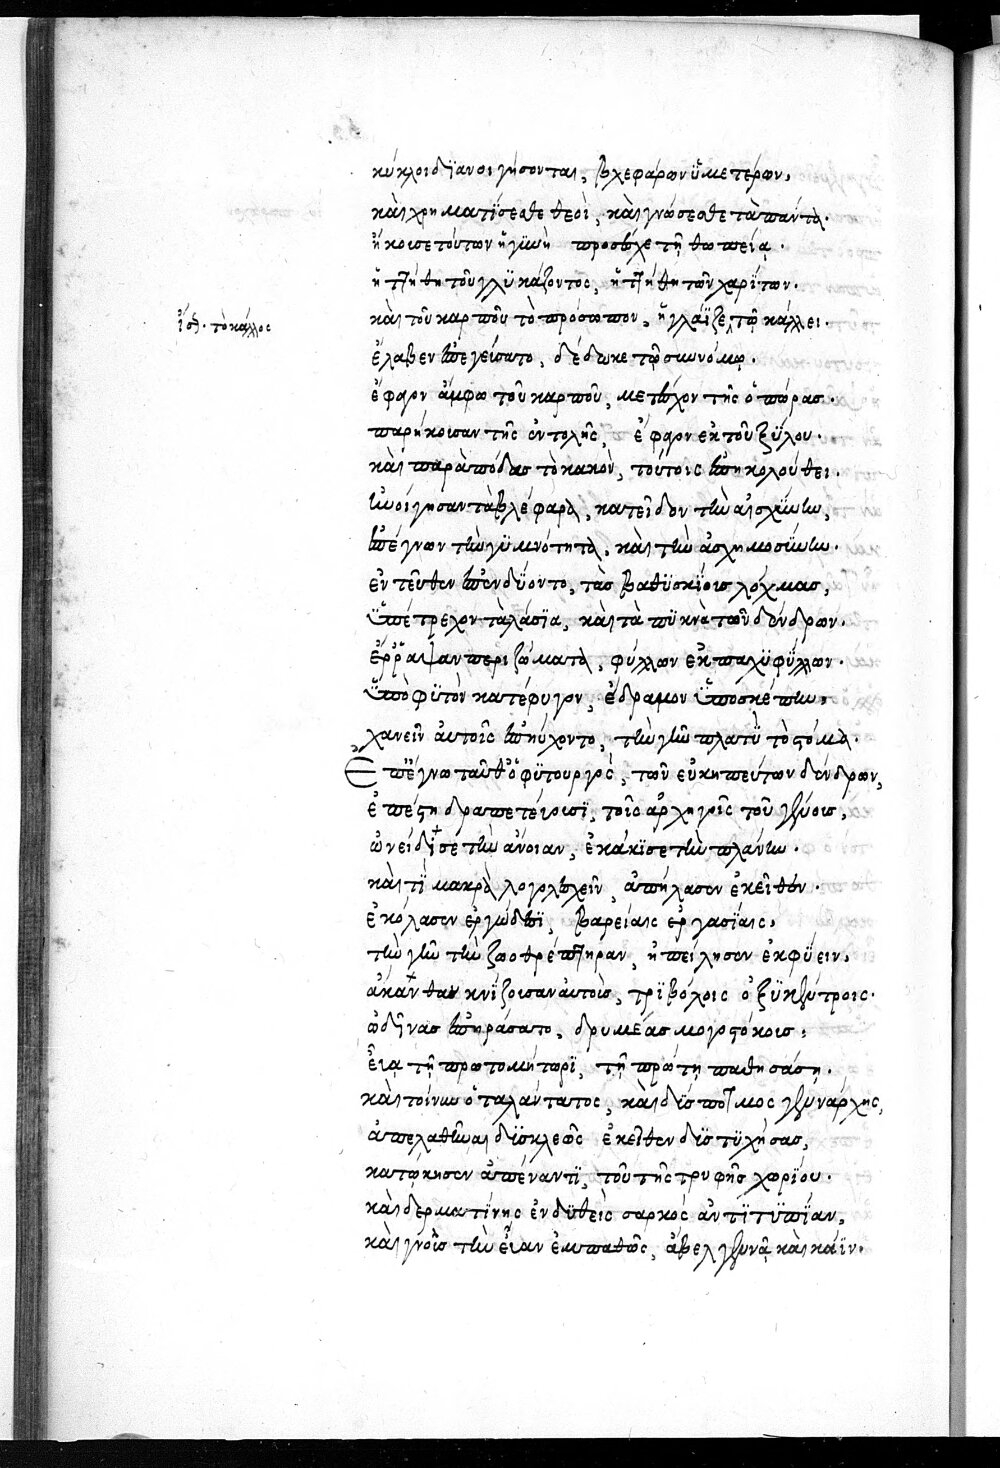 κύκλοι διανοιγήσονται, βλεφάρων ὑμετέρων,
καὶ χρηματίσεσθε θεοὶ, καὶ γνώσεσθε τὰ πάντα.
ἤκουσε τούτων ἡ γυνὴ προσέσχε τῇ θωπείᾳ.
ἡττήθη τοῦ γλυκάζοντος, ἡττήθη τῶν χαρίτων.
ἴσ. τὸ κάλλος
καὶ τοῦ καρποῦ τὸ πρόσωπον, ἠγλάϊζε τῷ κάλλει.
ἔλαβεν ἀπεγεύσατο, δέδωκε τῷ συνόμῳ.
ἔφαγον ἄμφω τοῦ καρποῦ, μετέσχον τῆς ὀπώρας.
παρήκουσαν τῆς ἐντολῆς, ἔφαγον ἐκ τοῦ ξύλου.
καὶ παρὰ πόδας τὸ κακὸν, τούτοις ἐπηκολούθει.
ἠνοίγησαν τὰ βλέφαρα, κατεῖδον τὴν αἰσχύνην,
ἐπέγνων τὴν γυμνότητα, καὶ τὴν ἀσχημοσύνην.
ἐντεῦθεν ἐπενδύοντο, τὰς βαθυσκίους λόχμας,
ὑπέτρεχον τὰ λάσια, καὶ τὰ πυκνὰ τῶν δένδρων.
ἔρραψαν περιζώματα, φύλλων ἐκ παλυφύλλων.
ὑπὸ φυτὸν κατέφυγον, ἔδραμον ὑπὸ σκέπην,
χανεῖν αὐτοῖς ἐπηύχοντο, τὴν γῆν πλατὺ τὸ στόμα.
Ἐπέγνω ταῦθ' ὁ φυτουργὸς, τῶν εὐκηπεύτων δένδρων,
ἐπέστη δραπετεύουσι, τοῖς ἀρχηγοῖς τοῦ γένους,
ὠνείδισε τὴν ἄνοιαν, ἐκάκισε τὴν πλάνην.
καὶ τί μακρὰ λογολεσχεῖν, ἀπήλασεν ἐκεῖθεν.
ἐκόλασεν ἐργώδεσι, βαρείαις ἐργασίαις,
τὴν γῆν τὴν ζωοθρέπτηραν, ἠπείλησεν ἐκφύειν,
ἀκάνθας κνιζούσαν αὐτοὺς, τριβόλοις ὀξυκέντροις.
ὠδῖνας ἐπηράσατο, δριμέας μογοστόκους,
εὔᾳ τῇ πρωτομήτορι, τῇ πρώτῃ παθησάσῃ.
καὶ τοίνυν ὁ ταλάντατος, καὶ δύσποτμος γενάρχης,
ἀπελαθῆναι δυσκλεῶς ἐκεῖθεν δυστυχήσας,
κατῴκησεν ἀπέναντι, τοῦ τῆς τρυφῆς χωρίου.
καὶ δερματίνης ἐνδυθεὶς σαρκὸς ἀντιτυπίαν,
καὶ γνοὺς τὴν εὔαν ἐμπαθῶς, ἄβελ γεννᾷ καὶ κάϊν.